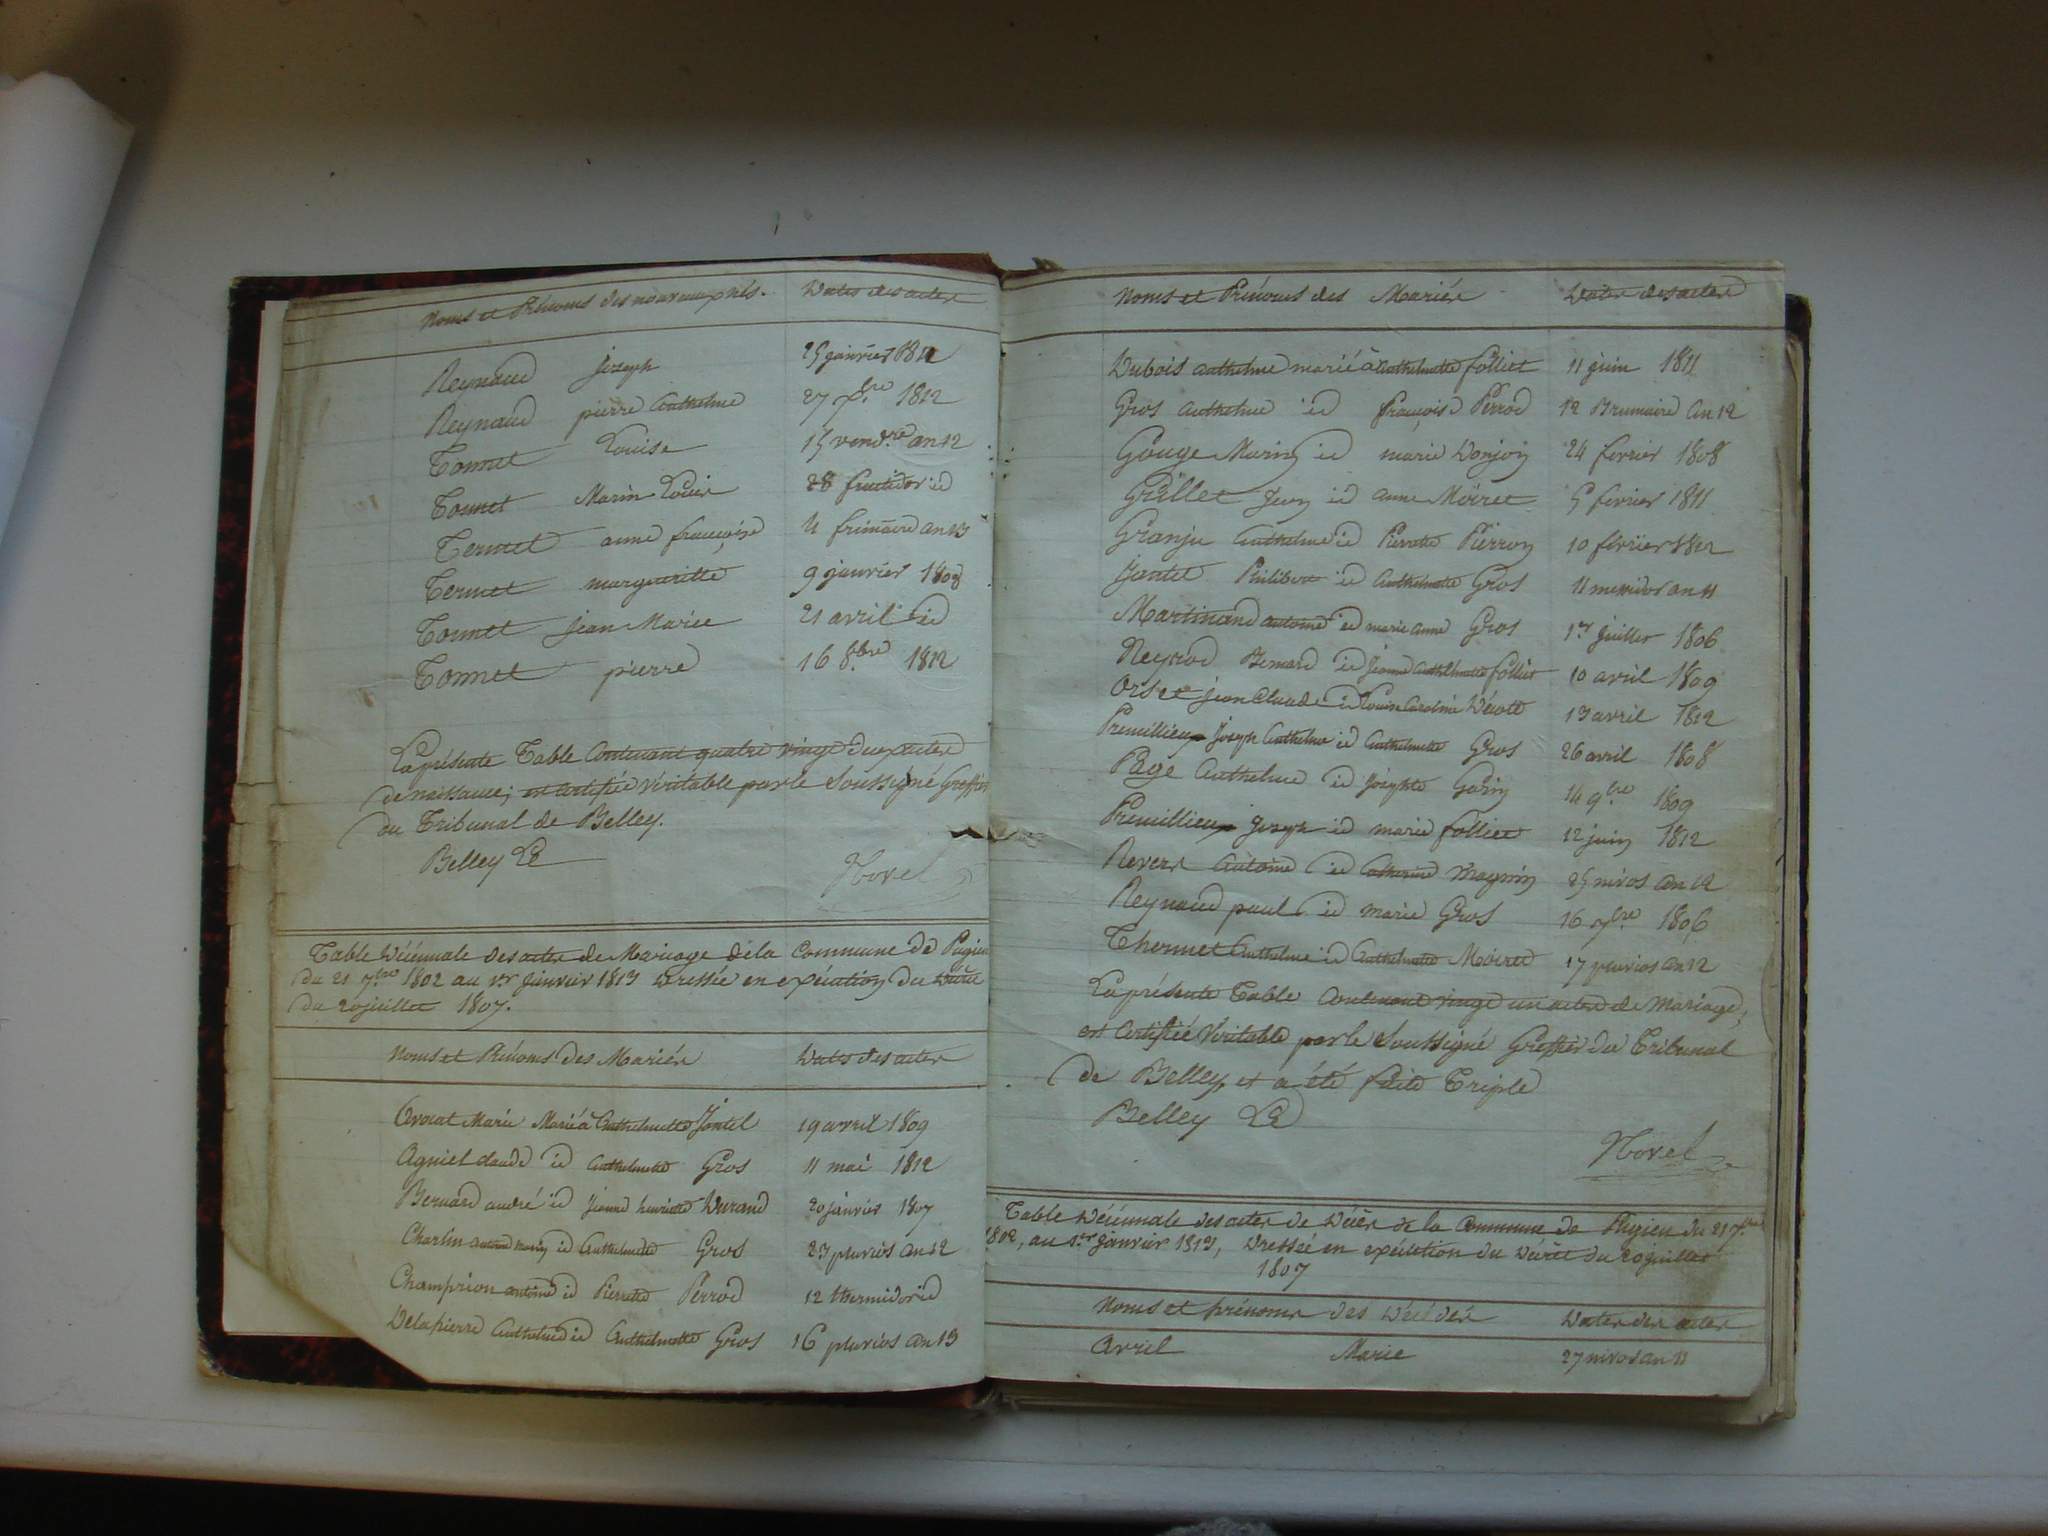 Noms et Prénoms des nouveaux nés. Dates des actes
Reynaud joseph 25 janvier 1811
Reynaud pierre anthelme 27 7.bre 1812
Tonnet Louise 15 vend.re an 12
Tonnet Marin Louis 28 fructidor id
Termet anne françoise 11 frimaire an 13
Termet margueritte 9 janvier
Tonnet jean Marie 21 avril id
Tonnet pierre 16 8.bre 1812
La présente Table Contenant quatre vingt deux actes
de naissance, est certifiée Véritable par le Soussigné Greffier
du Tribunal de Belley.
Belley Le
Novel
Table Décénnale des actes de Mariage de la Commune de Pugieu
du 21 7.bre 1802 au 1.er janvier 1813 Dressée en exécution du Décret
du 20 juillet 1807.
Noms et Prénoms des Mariés Dates des actes
Avocat Marie Marié à Anthelmette Jantel 19 avril 1809
Agniel claude id Anthelmette Gros 11 mai 1812
Bernard andré id Jeanne henriette Durand 20 janvier 1807
Charlin antoine id Anthelmette Gros 23 pluvios an 12
Champrion antoine id Pierrette Perrod 12 thermidor id
Delapierre Anthelme id Anthelmette Gros 16 pluvios an 13
Noms et Prénoms des Mariés Dates des actes
Dubois anthelme marié à Anthelmette folliet 11 juin 1811
Gros anthelme id françoise Perrod 12 Brumaire an 12
Gouge Marin id marie Donjon 24 fevrier 1808
Grillet Jean id anne Moiret 5 fevrier 1811
Granju Anthelme id Pierrette Pierron 10 février 1812
Jantel Philibert id Anthelmette Gros 11 messidor an 11
Martinand antoine id marie anne Gros 1.er juillet 1806
Neyrod Bernard id jeanne anthelmette folliet 10 avril 1809
Orset jean Claude id Louise Caroline 13 avril 1812
Premillieu Joseph Anthelme id Anthelmette Gros 26 avril 1808
Page Anthelme id josephte Gorin 14 9.bre 1809
Premillieu Joseph id marie folliet 12 juin 1812
Revers Antoine id Catherine Magnin 25 nivos an 12
Reynaud paul id marie Gros 16 7.bre 1806
Thonnet Anthelme id Anthelmette Moiret 17 pluvios an 12
La présente Table Contenant vingt un actes de Mariage,
est Certifiée Véritable par le Soussigné Greffier du Tribunal
de Belley, et a été faite Triple
Belley Le
Novel
Table Décénnale des actes de Décès de la Commune de Pugieu du 21 7.bre
1802, au 1.er janvier 1813, Dressée en exécution du Décret du 20 juillet
1807
Noms et prénoms des Décédés Dates des actes
Avril Marie 27 nivos an 11